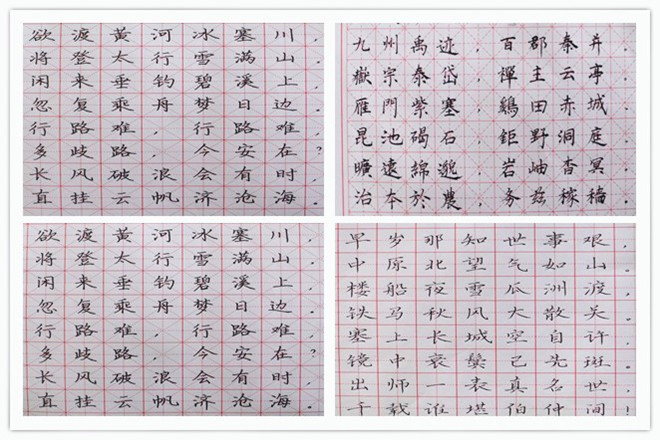 欲渡黄河冰塞川，
将登太行雪满山。
闲来垂钓碧溪上，
忽复乘舟梦日边。
行路难，行路难，
多歧路，今安在？
长风破浪会有时，
直挂云帆济沧海。
九州禹迹，百郡秦并。
嶽宗泰岱，禪主云亭。
雁門紫塞，鷄田赤城。
昆池碣石，鉅野洞庭。
曠遠綿邈，岩岫杳冥。
治本於農，务兹稼穑。
欲渡黄河冰塞川，
将登太行雪满山。
闲来垂钓碧溪上，
忽复乘舟梦日边。
行路难，行路难，
多歧路，今安在？
长风破浪会有时，
直挂云帆济沧海。
早岁那知世事艰，
中原北望气如山。
楼船夜雪瓜洲渡，
铁马秋风大散关。
塞上长城空自许，
镜中衰鬓已先斑。
出师一表真名世，
千载谁堪伯仲间！